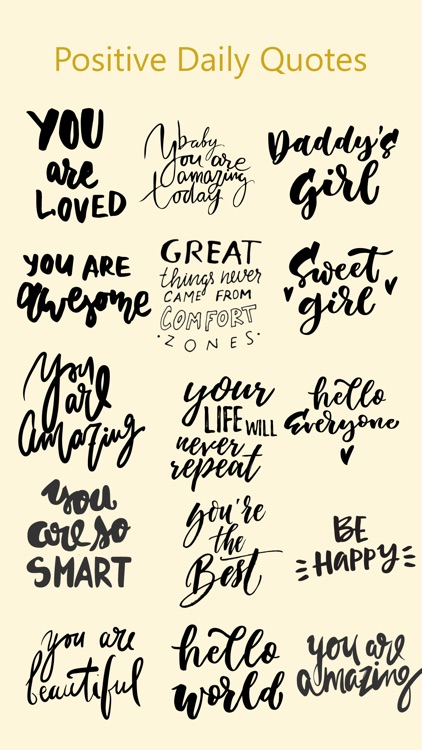 Positive Daily Quotes
YOU
are
LOVED
baby
you are
amazing
today
Daddy's
girl
YOU ARE
awesome
GREAT
things never
CAME FROM
COMFORT
ZONES
Sweet
girl
you
are
amazing
your
LIFE WILL
never
repeat
hello
everyone
you
are so
SMART
you're
the
Best
BE
HAPPY
you are
beautiful
hello
world
you are
amazing